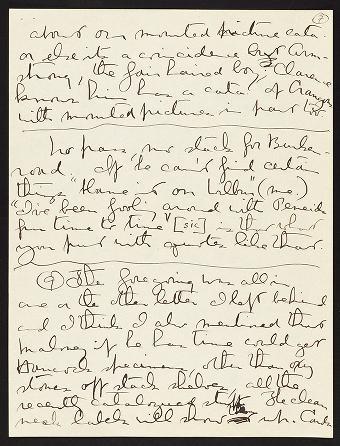 (7)
about our mounted picture cata.
or else its a coincidence but Arm-
strong, the fair haired boy, Clarence
knows him has a cata. of Granger
with mounted pictures in part too
No pass, nor stack for Burken-
road. If he can't find certain
things "Blame it on Wilbur" (me.)
"I've been fool' around with Peneids
from time to time" [sic] is that what
you put with quotes like that
(9) The foregoing was all in
one or the other letter I left behind
and I think I also mentioned that
Malone if he has time could get
Hancock specimens, other than dry
stores off stack shelves, all the
recently catalogued stuff. The clean
neck labels will show up. Cards